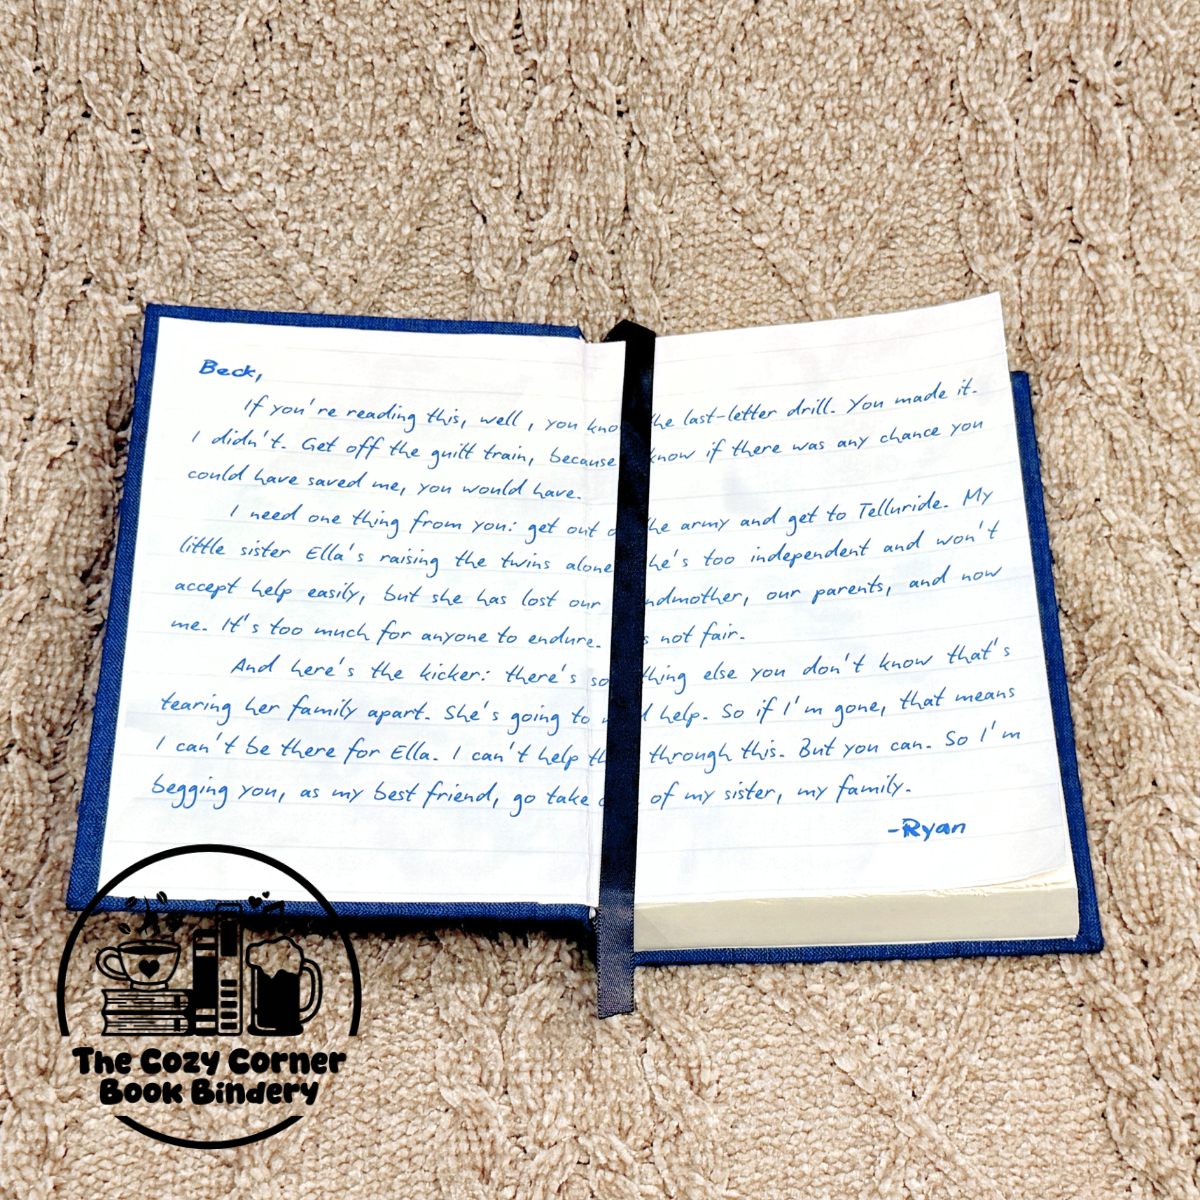 Beck,
If you're reading this, well, you kno he last-letter drill. You made it.
I didn't. Get off the guilt train, because know if there was any chance you
could have saved me, you would have.
I need one thing from you: get out o he army and get to Telluride. My
little sister Ella's raising the twins alone he's too independent and won't
accept help easily, but she has lost our ndmother, our parents, and now
me. It's too much for anyone to endure. s not fair.
And here's the kicker: there's so thing else you don't know that's
tearing her family apart. She's going to help. So if I'm gone, that means
I can't be there for Ella. I can't help th through this. But you can. So I'm
begging you, as my best friend, go take of my sister, my family.
-Ryan
The Cozy Corner
Book Bindery